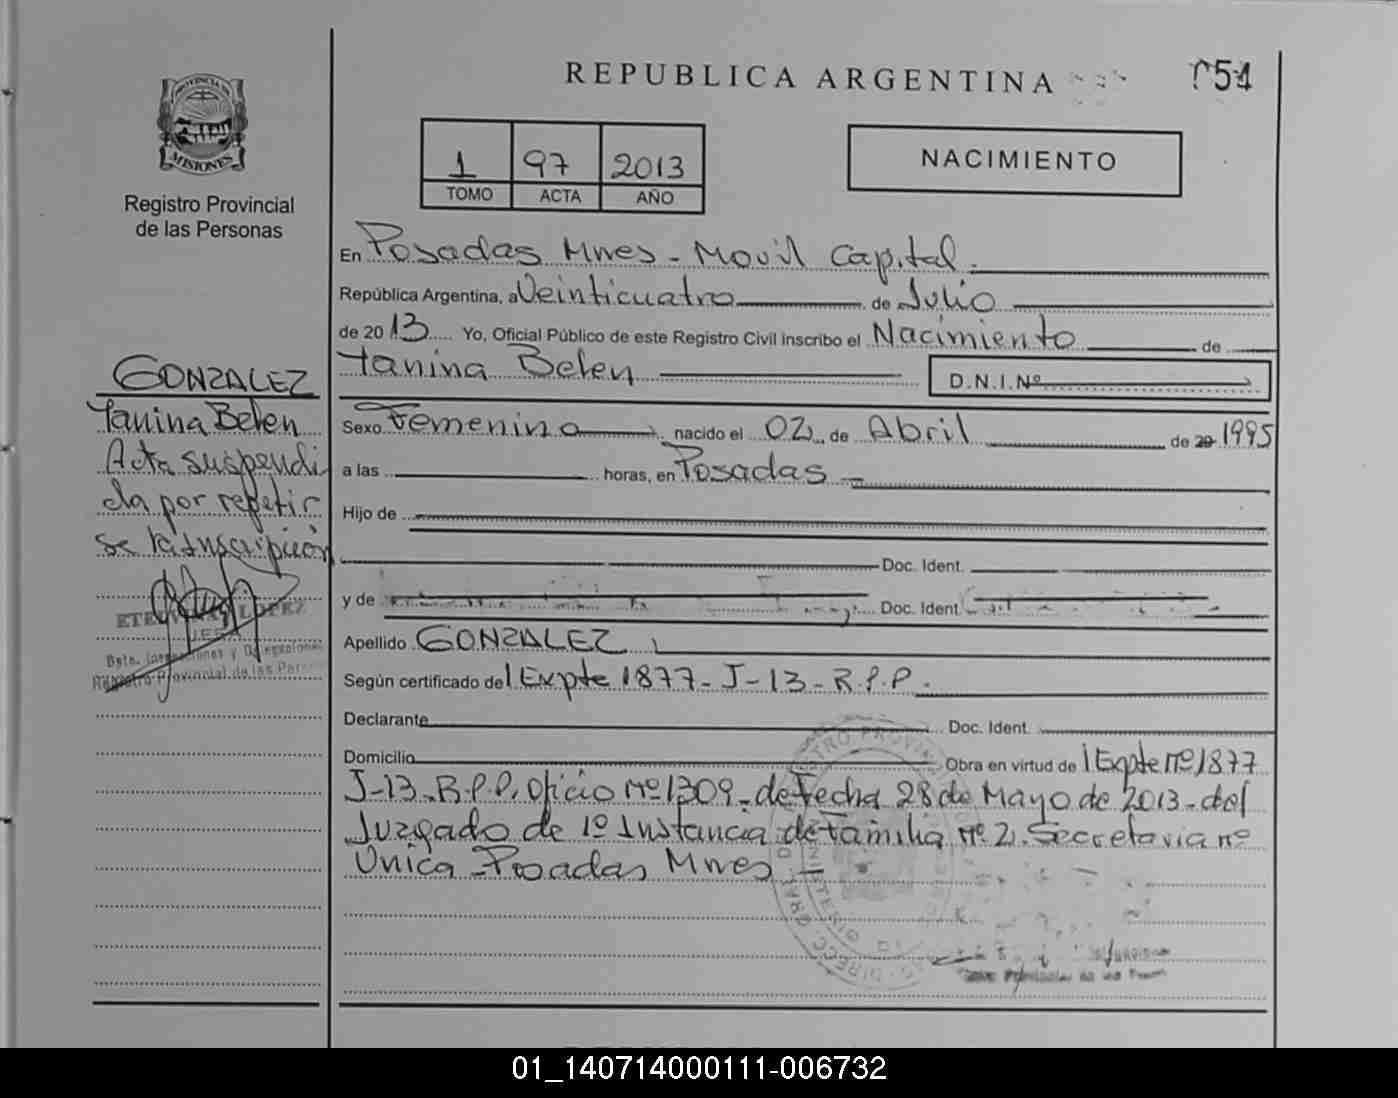 REPUBLICA ARGENTINA
054
PROVINCIA DE
MISIONES
Registro Provincial
de las Personas
1 97 2013
TOMO ACTA AÑO
NACIMIENTO
En Posadas Mnes - Movil Capital.
República Argentina, a Veinticuatro de Julio
de 2013 Yo, Oficial Público de este Registro Civil inscribo el Nacimiento de
Yanina Belen D.N.I.Nº
Sexo Femenino nacido el 02 de Abril de 20 1995
a las horas, en Posadas
Hijo de
Doc. Ident.
y de Doc. Ident
Apellido GONZALEZ
Según certificado del Expte 1877-J-13-R.P.P.
Declarante Doc. Ident.
Domicilio Obra en virtud de l Expte nº 1877
J-13-R.P.P. Oficio nº 1309 - de Fecha 28 de Mayo de 2013 - del
Juzgado de 1º Instancia de Familia nº 2. Secretaria nº
Unica - Posadas Mnes
GONZALEZ
Yanina Belen
Acta suspendi
da por repetir
se la inscripción
LOPEZ
JEFA
Registro Provincial de las Per
01_140714000111-006732